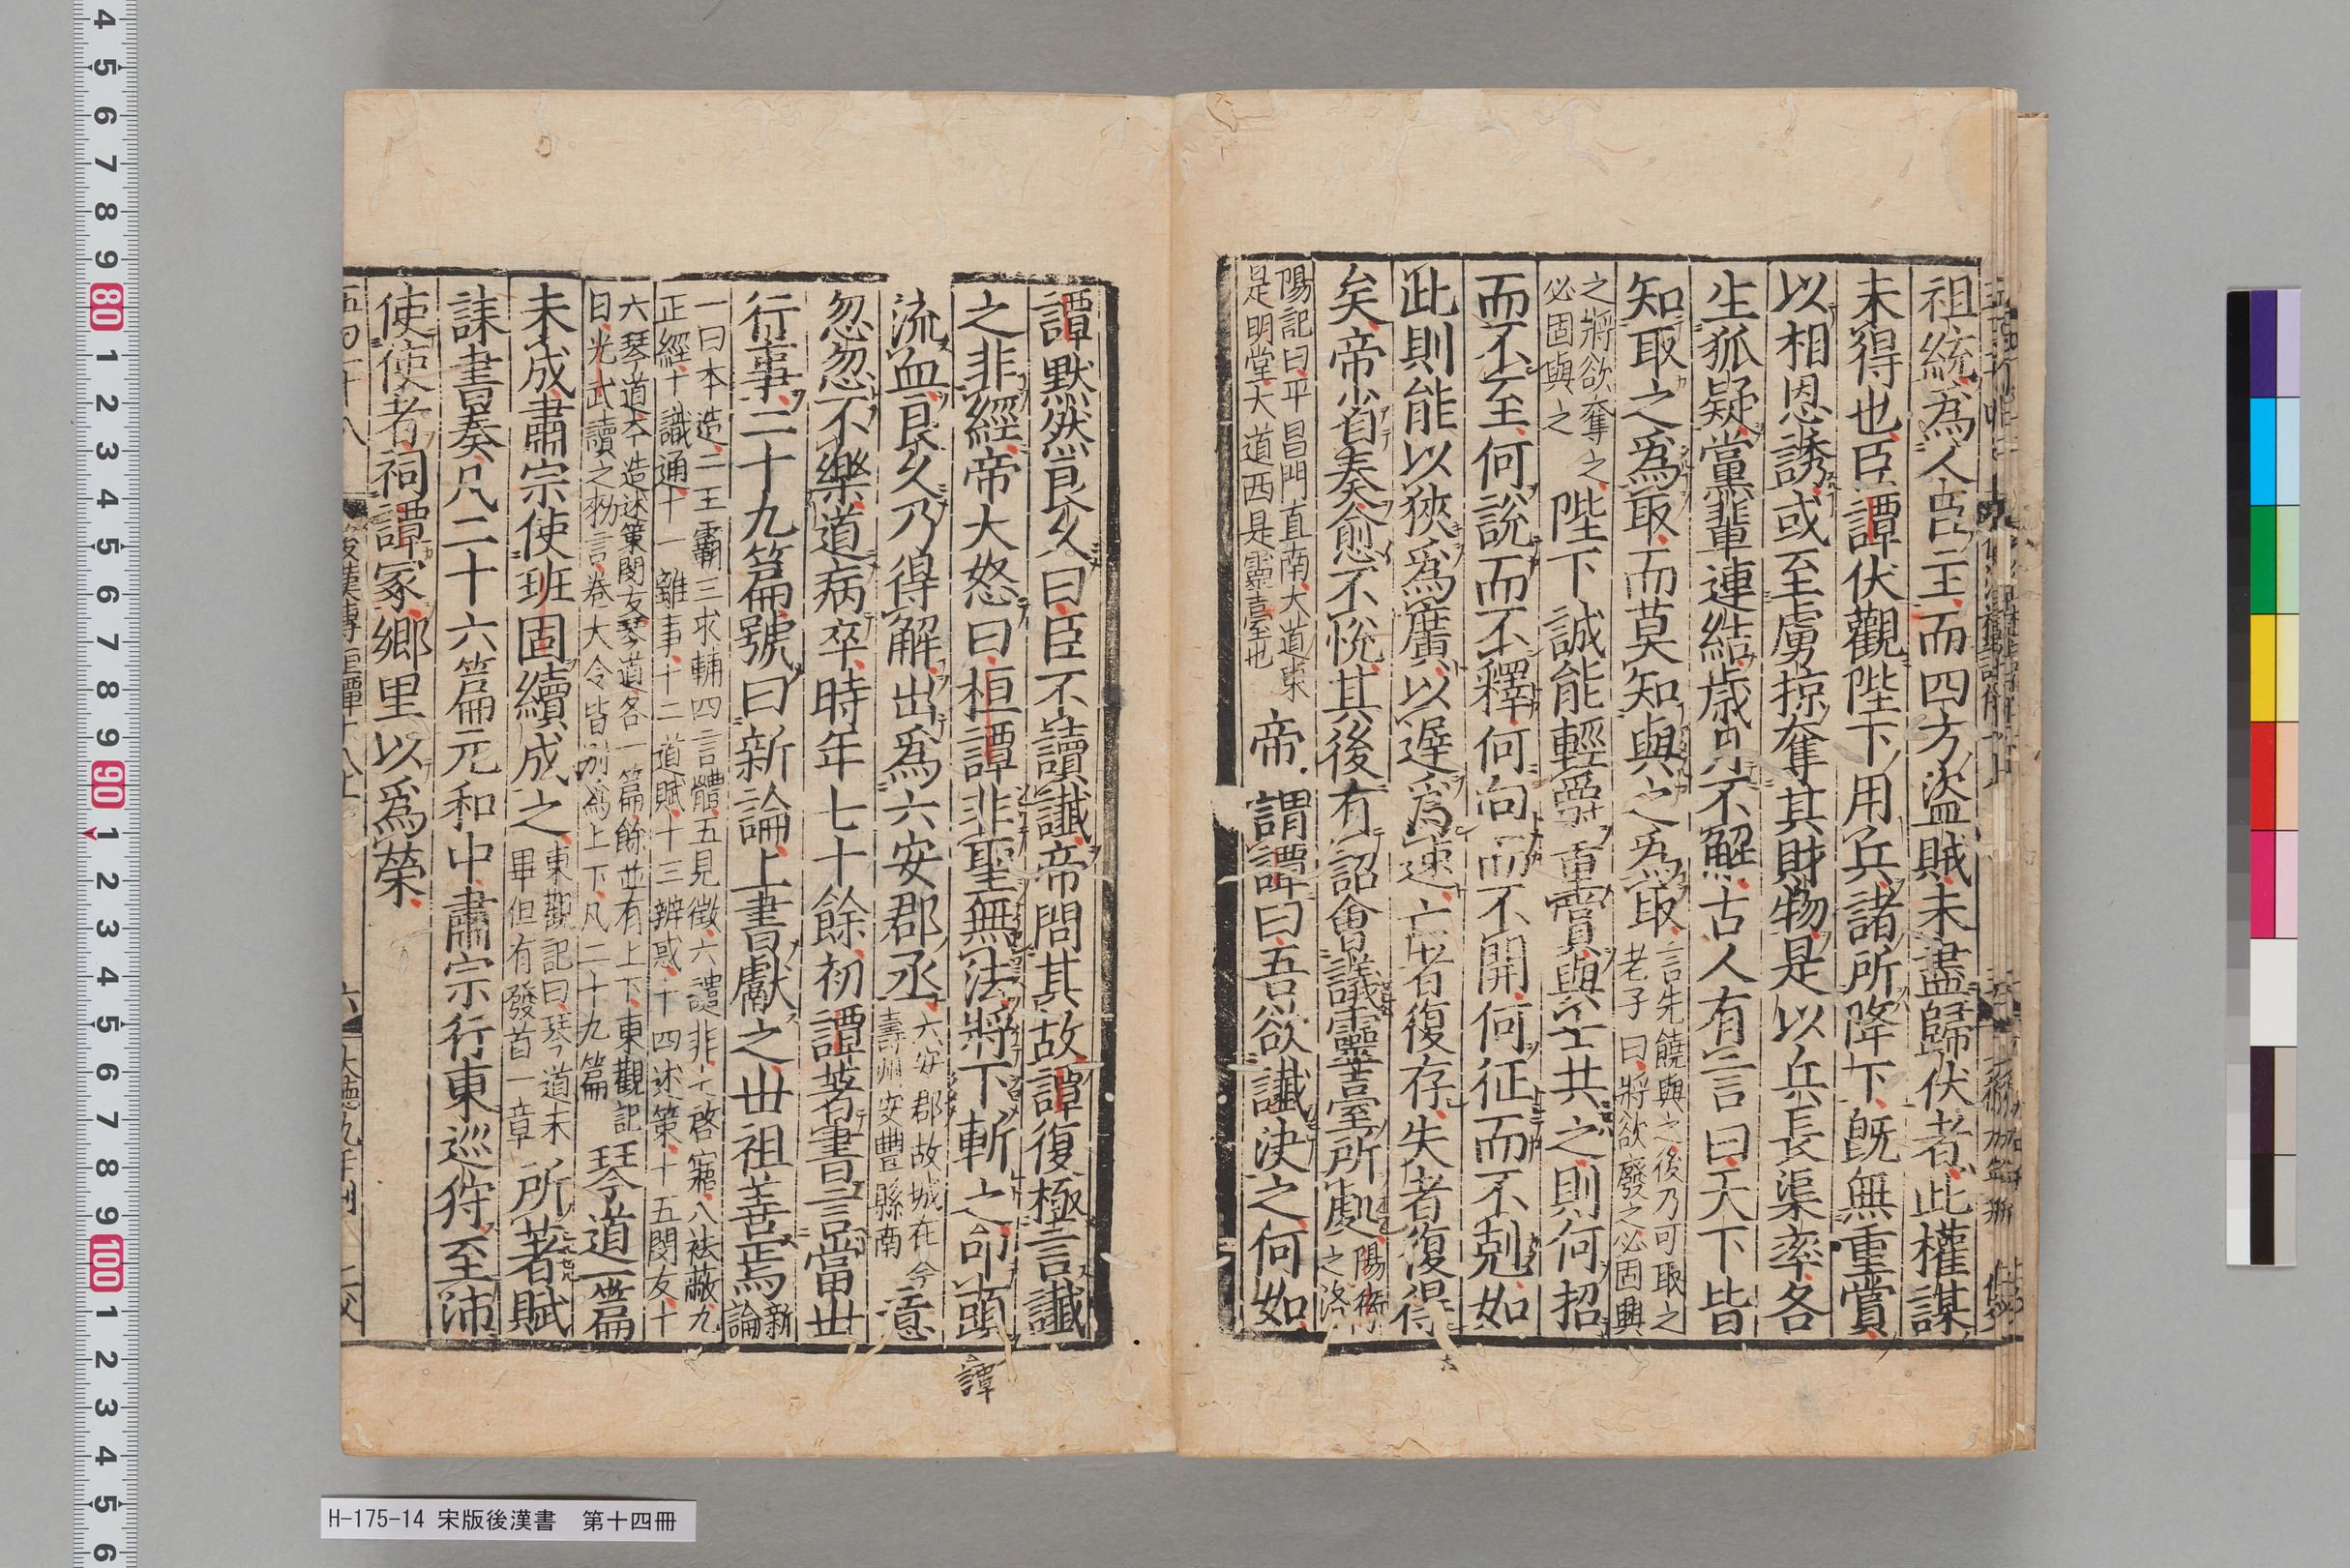 祖統爲人臣主而四方盜賊未盡歸伏者此權謀
未得也臣譚伏觀陛下用兵諸所降下旣無重賞
以相恩誘或至虜掠奪其財物是以兵長渠率各
生狐疑黨輩連結歳月不解古人有言曰天下皆
知取之爲取而莫知與之爲取言先饒與之後乃可取之
老子曰將欲廢之必固興
之將欲奪之
必固與之陛下誠能輕爵重賞與士共之則何招
而不至何說而不釋何向而不開何征而不剋如
此則能以狹爲廣以遲爲速亡者復存失者復得
矣帝省奏愈不悅其後有詔會議靈臺所處陽衒
之洛
陽記曰平昌門直南大道東
是明堂大道西是靈臺也帝謂譚曰吾欲讖決之何如
譚默然良久曰臣不讀讖帝問其故譚復極言讖
之非經帝大怒曰桓譚非聖無法將下斬之叩頭
流血良久乃得解出爲六安郡丞六安郡故城在今
壽州安豐縣南意
忽忽不樂道病卒時年七十餘初譚著書言當世
行事二十九篇號曰新論上書獻之世祖善焉新
論
一曰本造二王霸三求輔四言體五見徵六譴非七啓寤八袪蔽九
正經十識通十一離事十二道賦十三辨惑十四述策十五閔友十
六琴道本造述策閔友琴道各一篇餘並有上下東觀記
曰光武讀之勑言卷大令皆別爲上下凡二十九篇琴道一篇
未成肅宗使班固續成之東觀記曰琴道未
畢但有發首一章所著賦
誄書奏凡二十六篇元和中肅宗行東巡狩至沛
使使者祠譚冢鄉里以爲榮
譚
H-175-14 宋版後漢書 第十四冊